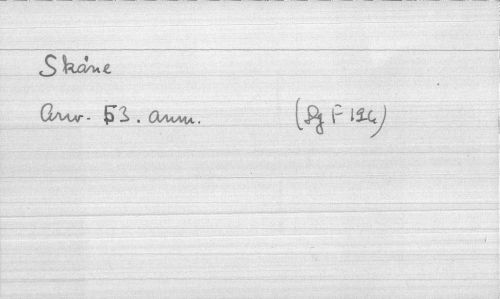 Skåne
Arw. 53. anm. (Sg F 124)